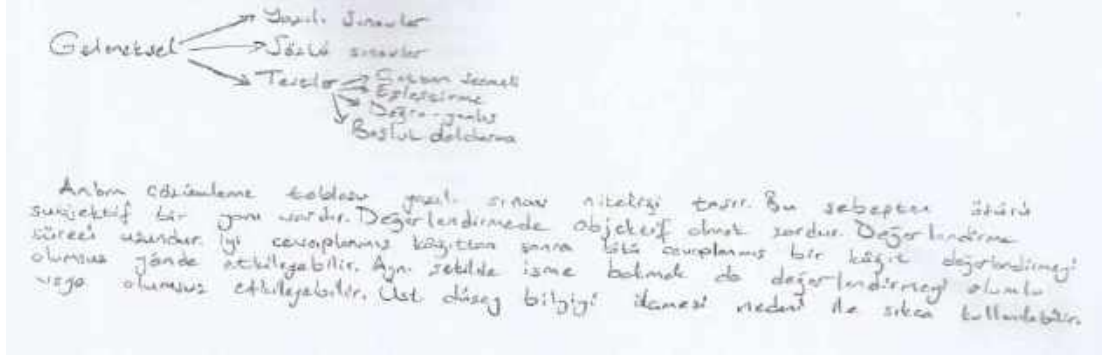 Yazılı Sınavlar
Gelmeksel
Sözlü sınavlar
Testler
Çoktan Seçmeli
Eşleştirme
Doğru-yanlış
Boşluk doldurma
Anlam çözümleme tablosu yazılı sınav niteliği taşır. Bu sebepten ötürü
subjektif bir yanı vardır. Değerlendirmede objektif olmak zordur. Değerlendirme
süreci uzundur. İyi cevaplanmış kağıttan sonra kötü cevaplanmış bir kağıt değerlendirmeyi
olumsuz yönde etkileyebilir. Aynı şekilde isme bakmak da değerlendirmeyi olumlu
veya olumsuz etkileyebilir. Üst düzey bilgiyi nedeni ile sıkça kullanılabilir.